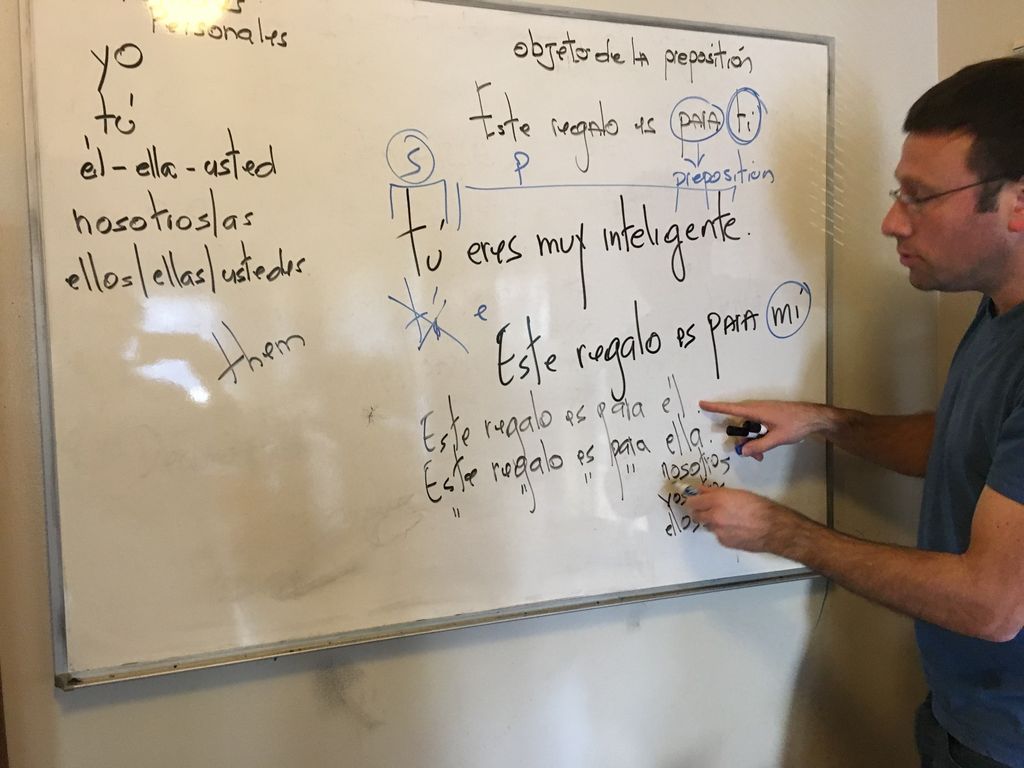 Personales
yo
tú
él-ella-usted
nosotros/as
ellos/ellas/ustedes
them
objeto de la preposition
Este regalo es para ti
preposition
S
P
tú eres muy inteligente.
e
Este regalo es para mí
Este regalo es para él.
Este regalo es para ella.
" " " " nosotros